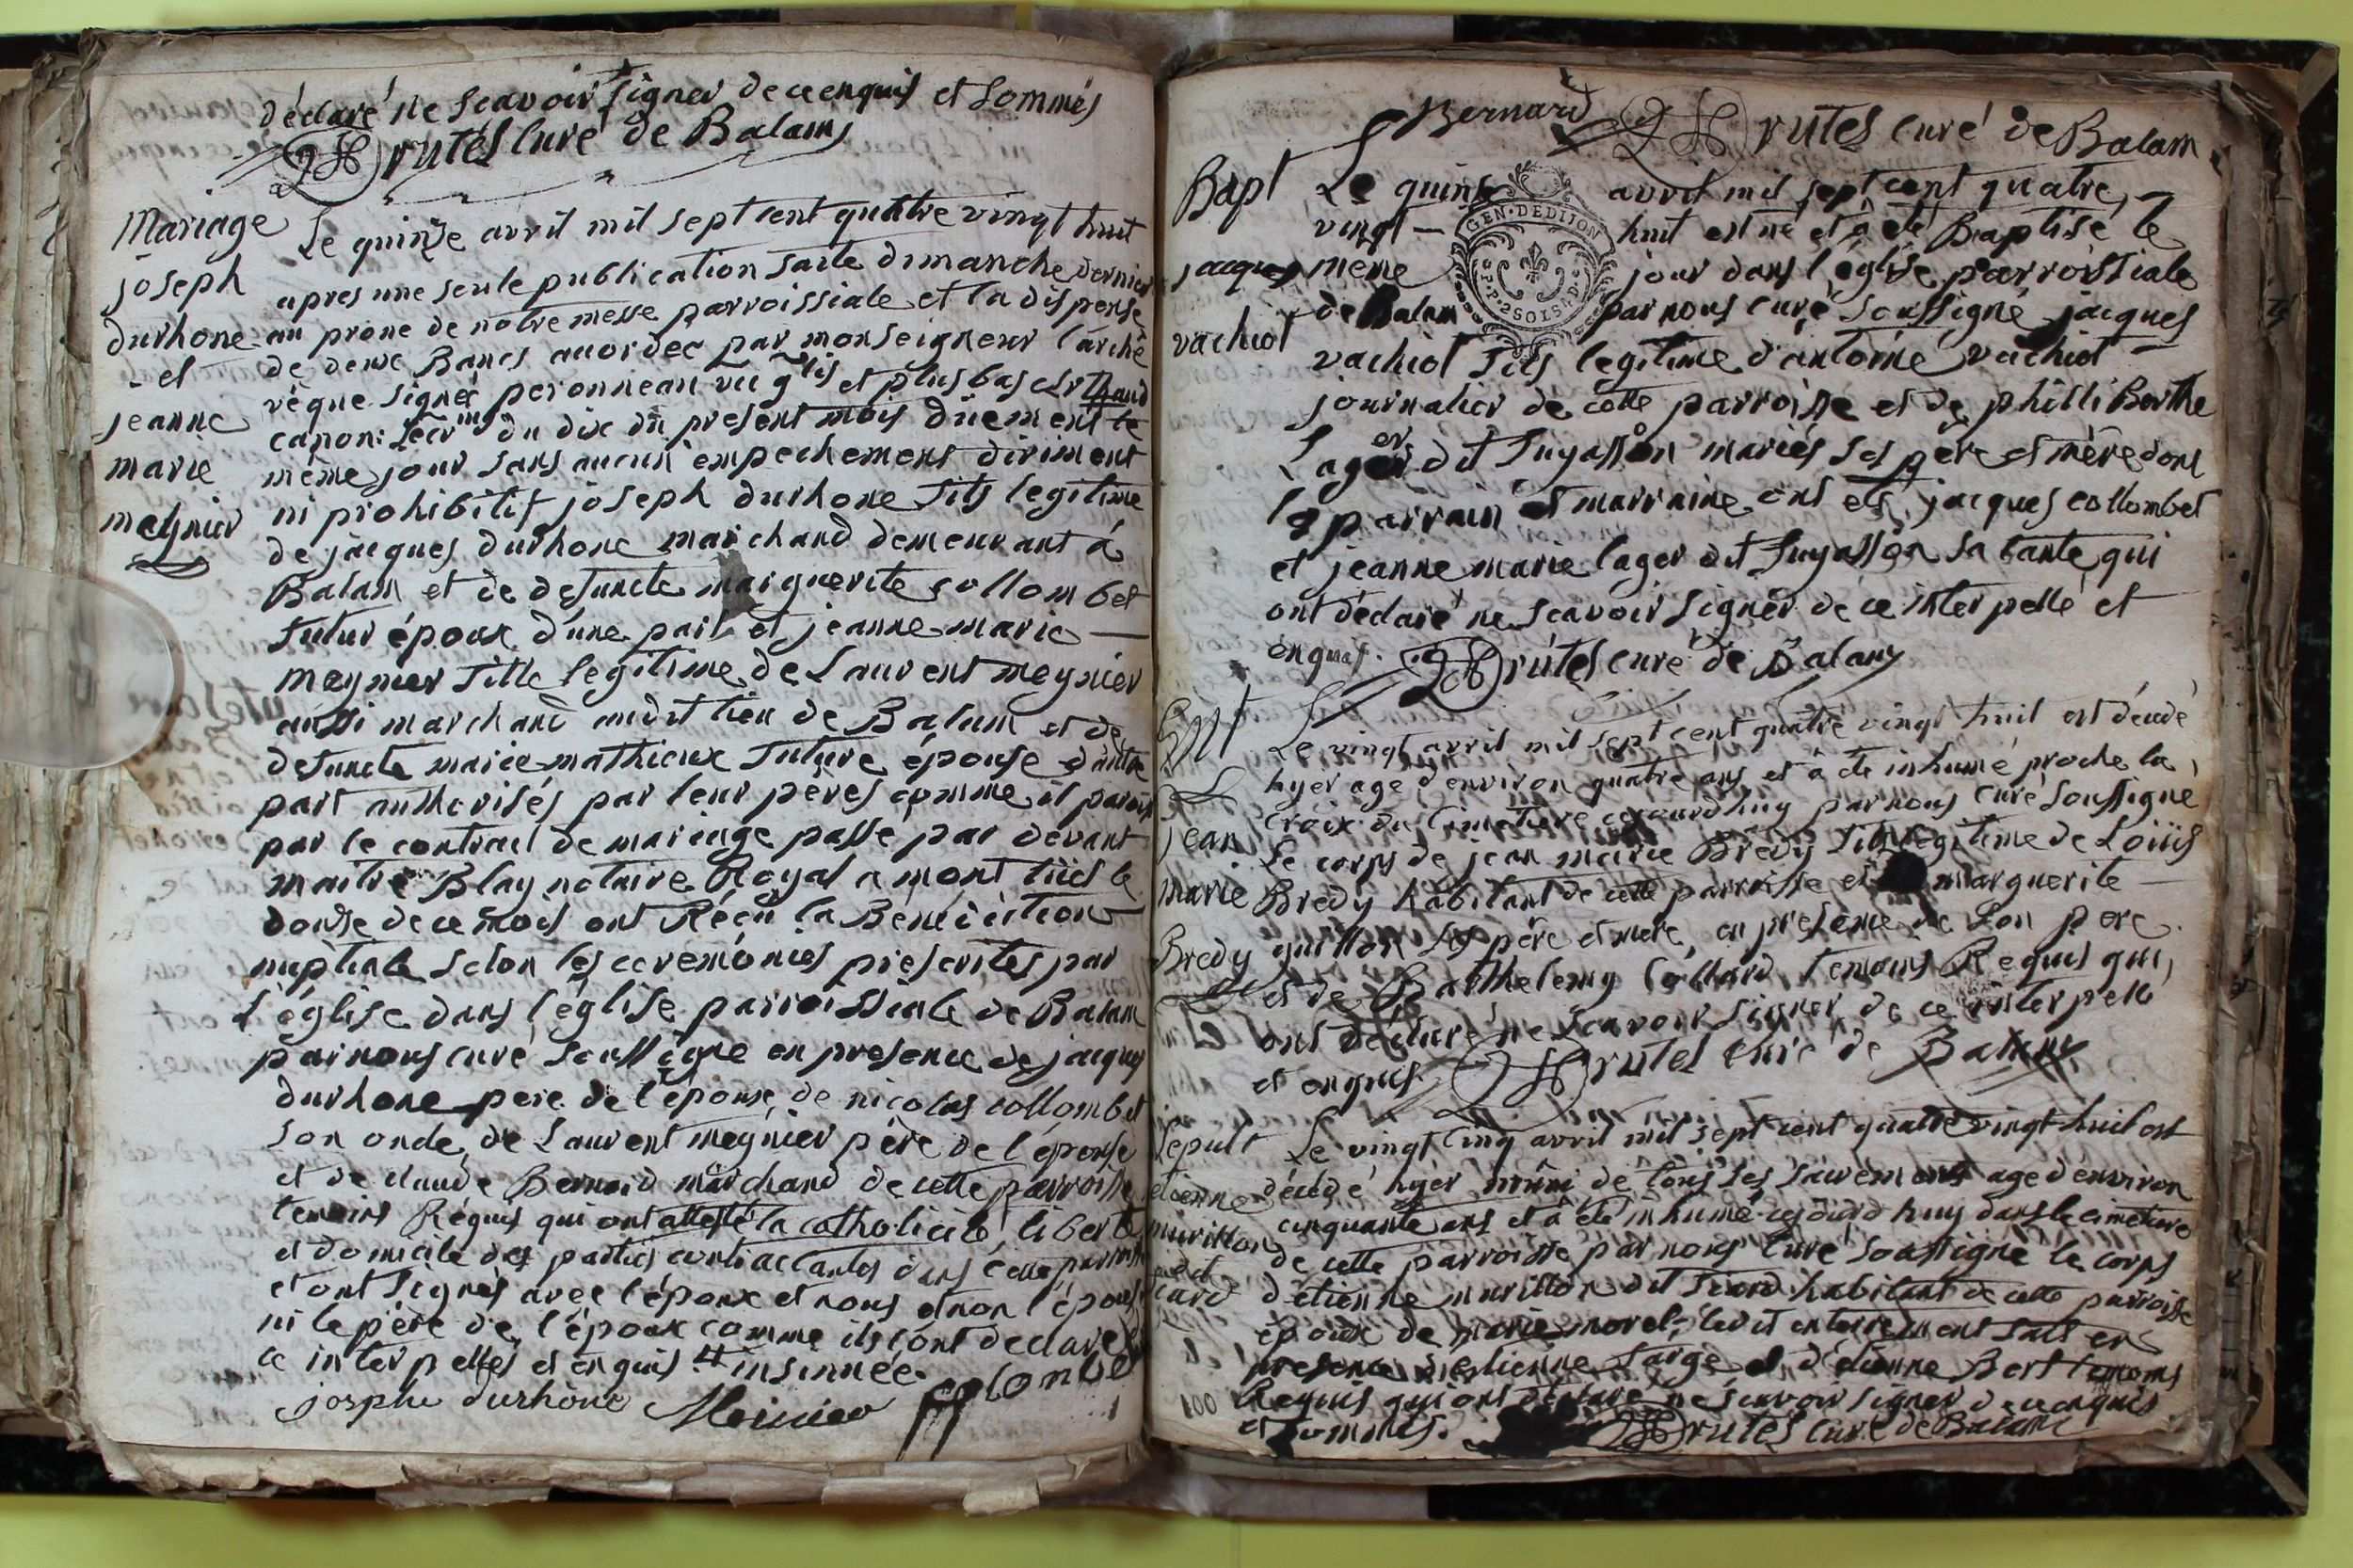 déclaré ne scavoir signer de ce enquis et sommés
Brutel curé de Balam
Mariage
joseph
durhone
et
jeanne
marie
meynier
Le quinze avril mil sept cent quatre vingt huit
apres une seule publication faite dimanche dernier
au prone de notre messe parroissiale et la dispense
de deux Bancs accordée par monseigneur l'arche
vêque signée peronneau vic glis et plus bas
canon: secr du dix du present mois düement le
même jour sans aucun empechement diriment
ni prohibitif joseph durhone fils legitime
de jacques durhone marchand demeurant à
Balam et de defuncte marguerite collombet
futur époux d'une part et jeanne marie
meynier fille legitime de Laurent meynier
aussi marchand audit lieu de Balam et de
defuncte marie mathieux future épouse d'autre
part authorisés par leur pères comme il parois
par le contract de mariage passé par devant
maitre Blay notaire Royal a mont luel le
douze de ce mois ont Reçü la Bénédiction
nuptiale selon les ceremonies prescrites par
l'église dans l'église parroissiale de Balam
par nous curé soussigné en presence de jacques
durhone pere de l'époux, de nicolas collombet
son oncle, de Laurent meynier père de l'épouse
et de claude Bernard marchand de cette parroisse
temoins Réquis qui ont attesté la catholicité, liberté
et domicile des parties contractantes dans cette parroisse
et ont signés avec l'époux et nous et non l'épouse
ni le père de l'époux comme ils ont declaré
ce interpellés et enquis insinnée
josephe durhône Meinier colombet
Bernard Brutel curé de Balam
Bapt
jacques
vachiot
Le quinze avril mil sept cent quatre
vingt huit est né et à été Baptisé le
même jour dans l'église parroissiale
de Balam par nous curé soussigné jacques
GEN·DEDIJON
vachiot fils legitime d'antoine vachiot
journalier de cette parroisse et de philliberthe
Lager dit suyasson mariés ses père et mère dont
le parrain et marraine ont été jacques collombet
et jeanne marie lager dit suyasson sa tante qui
ont déclaré ne scavoir signer de ce interpellé et
enquis. Brutel curé de Balam
Jean
marie
Bredy
Le vingt avril mil sept cent quatre vingt huit est décédé
hyer age d'environ quatre ans et à été inhumé proche la
croix du cimetiere cejourd'huy par nous curé soussigné
Le corps de jean marie Bredy fils legitime de Loüis
Bredy habitant de cette parroisse et marguerite
guillon ses père et mere, en presence de son pere
et de Barthelemy Collard temoins Requis qui
ont déclaré ne scavoir signer de ce interpellé
et enquis. Brutel curé de Balam
Sepult
etienne
murillon
dit
Le vingt cinq avril mil sept cent quatre vingt huit est
décédé hyer muni de tous ses sacrements age d'environ
cinquante ans et à été inhumé cejourd'huy dans le cimetiere
de cette parroisse par nous curé soussigné le corps
d'étienne murillon dit habitant de cette parroisse
époux de marie morel, ledit enterrement fait en
presence d'estienne farge et d'étienne Bert temoins
Requis qui ont déclaré ne scavoir signer de ce enquis
et sommés. Brutel curé de Balam